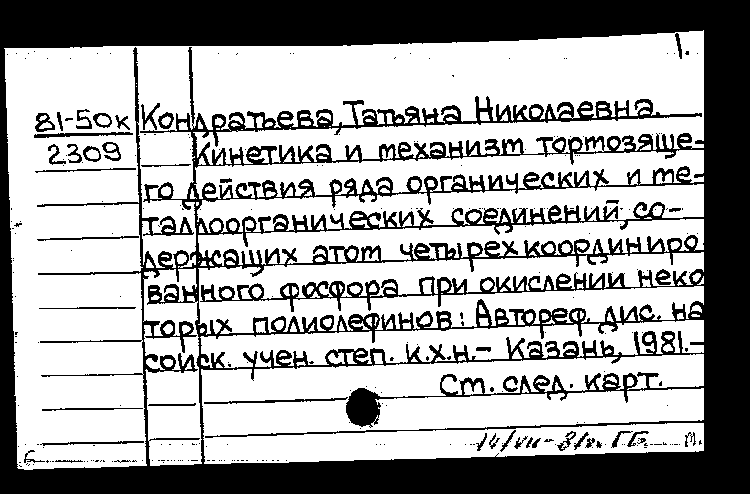 1.
81-50к Кондратьева, Татьяна Николаевна.
2309 Кинетика и механизм тормозяще-
го действия ряда органических и ме-
таллоорганических соединений, со-
держащих атом четырехкоординиро
ванного фосфора при окислении неко
торых полиолефинов: Автореф. дис. на
соиск. учен. степ. к.х.н.- Казань, 1981.-
См. след. карт.
14/VII-81г. ГБ. М.
Б